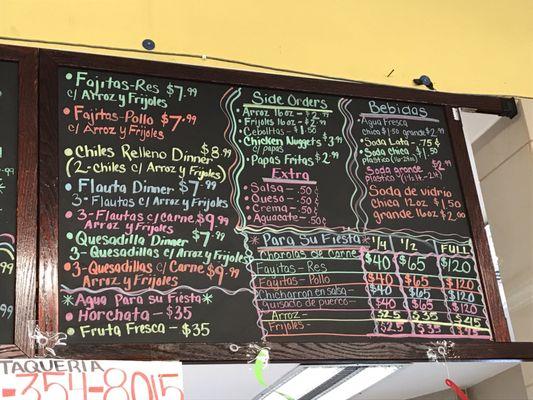 Fajitas-Res $7.99
c/Arroz y Frijoles
Fajitas-Pollo $7.99
c/Arroz y Frijoles
Chiles Relleno Dinner $8.99
(2-chiles c/Arroz y Frijoles)
Flauta Dinner - $7.99
3-Flautas c/Arroz y Frijoles
3-Flautas c/Carne $9.99
Arroz y Frijoles
Quesadilla Dinner $7.99
3-Quesadillas c/Arroz y Frijoles
3-Quesadillas c/Carne $9.99
Arroz y Frijoles
*Agua Para su Fiesta*
Horchata - $35
Fruta Fresca - $35
Side Orders
Arroz 16oz - $2.99
Frijoles 16oz - $2.99
Cebollitas - $1.50
Chicken Nuggets $3.99
c/papas
Papas Fritas $2.99
Extra
Salsa - .50¢
Queso - .50¢
Crema - .50¢
Aguacate - .50¢
Bebidas
Agua Fresca
chica $1.50 grande $2.99
Soda Lata - .75¢
Soda Chica $1.50
plastico
Soda grande $2.99
plastico
Soda de vidrio
chica 12oz $1.50
grande 16oz $2.00
*Para Su Fiesta 1/4 1/2 FULL
Charolas de Carne $40 $65 $120
Fayitas - Res $40 $65 $120
Fayitas - Pollo $40 $65 $120
Chicharron en salsa $40 $65 $120
Guisado de puerco $40 $65 $120
Arroz - $25 $35 $45
Frijoles - $25 $35 $45
TAQUERIA
-354-8015